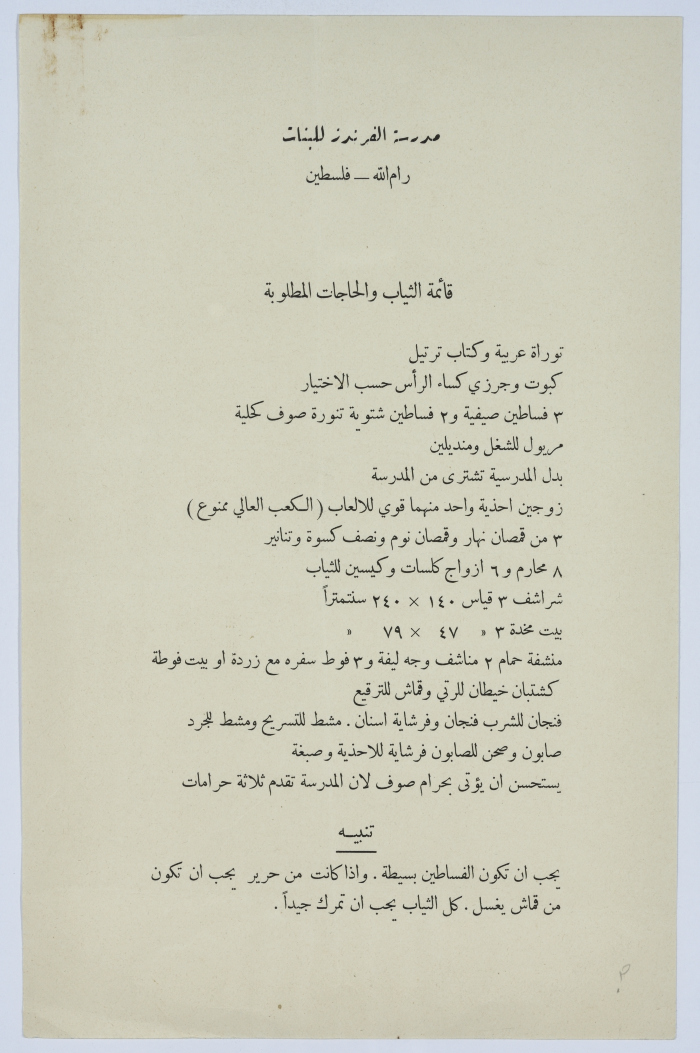 مدرسة الفرندز للبنات
رام الله — فلسطين
قائمة الثياب والحاجات المطلوبة
توراة عربية وكتاب ترتيل
كبوت وجرزي كساء الرأس حسب الاختيار
٣ فساطين صيفية و٢ فساطين شتوية تنورة صوف كحلية
مريول للشغل ومنديلين
بدل المدرسية تشترى من المدرسة
زوجين احذية واحد منهما قوي للالعاب ( الكعب العالي ممنوع )
٣ من قمصان نهار وقمصان نوم ونصف كسوة وتنانير
٨ محارم و ٦ ازواج كلسات وكيسين للثياب
شراشف ٣ قياس ١٤٠ × ٢٤٠ سنتمتراً
بيت مخدة ٣ » ٤٧ × ٧٩ »
منشفة حمام ٢ مناشف وجه ليفة و٣ فوط سفره مع زردة او بيت فوطة
كشتبان خيطان للرتي وقماش للترقيع
فنجان للشرب فنجان وفرشاية اسنان . مشط للتسريح ومشط للجرد
صابون وصحن للصابون فرشاية للاحذية وصبغة
يستحسن ان يؤتى بحرام صوف لان المدرسة تقدم ثلاثة حرامات
تنبيــه
يجب ان تكون الفساطين بسيطة . واذا كانت من حرير يجب ان تكون
من قماش يغسل . كل الثياب يجب ان تمرك جيداً .